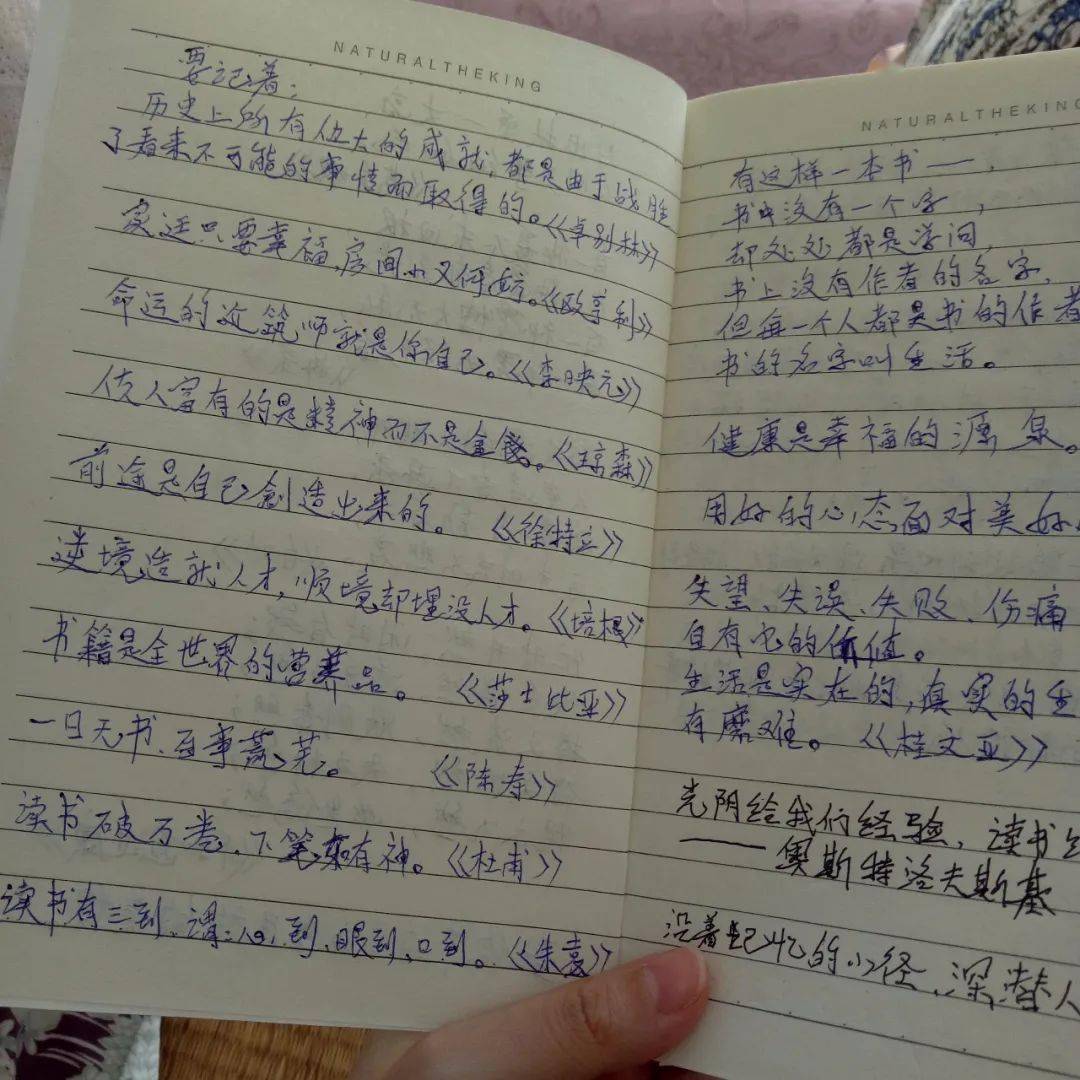 NATURALTHEKING
要记着：
历史上所有伟大的成就，都是由于战胜
了看来不可能的事情而取得的。《卓别林》
家廷只要幸福，房间小又何妨。《欧亨利》
命运的建筑师就是你自己。《李映元》
使人富有的是精神而不是金钱。《琼森》
前途是自己创造出来的。《徐特立》
逆境造就人才，顺境却埋没人才。《培根》
书籍是全世界的营养品。《莎士比亚》
一日无书、百事荒芜。《陈寿》
读书破万卷、下笔如有神。《杜甫》
读书有三到、谓：心到、眼到、口到。《朱熹》
NATURALTHEKING
有这样一本书——，
书中没有一个字，
却处处都是学问，
书上没有作者的名字，
但每一个人都是书的作者
书的名字叫生活。
健康是幸福的源泉。
用好的心态面对美好
失望、失误、失败、伤痛
自有它的价值。
生活是实在的，真实的生
有磨难。《桂文亚》
光阴给我们经验、读书
——奥斯特洛夫斯基
沿着记忆的小径、深潜入